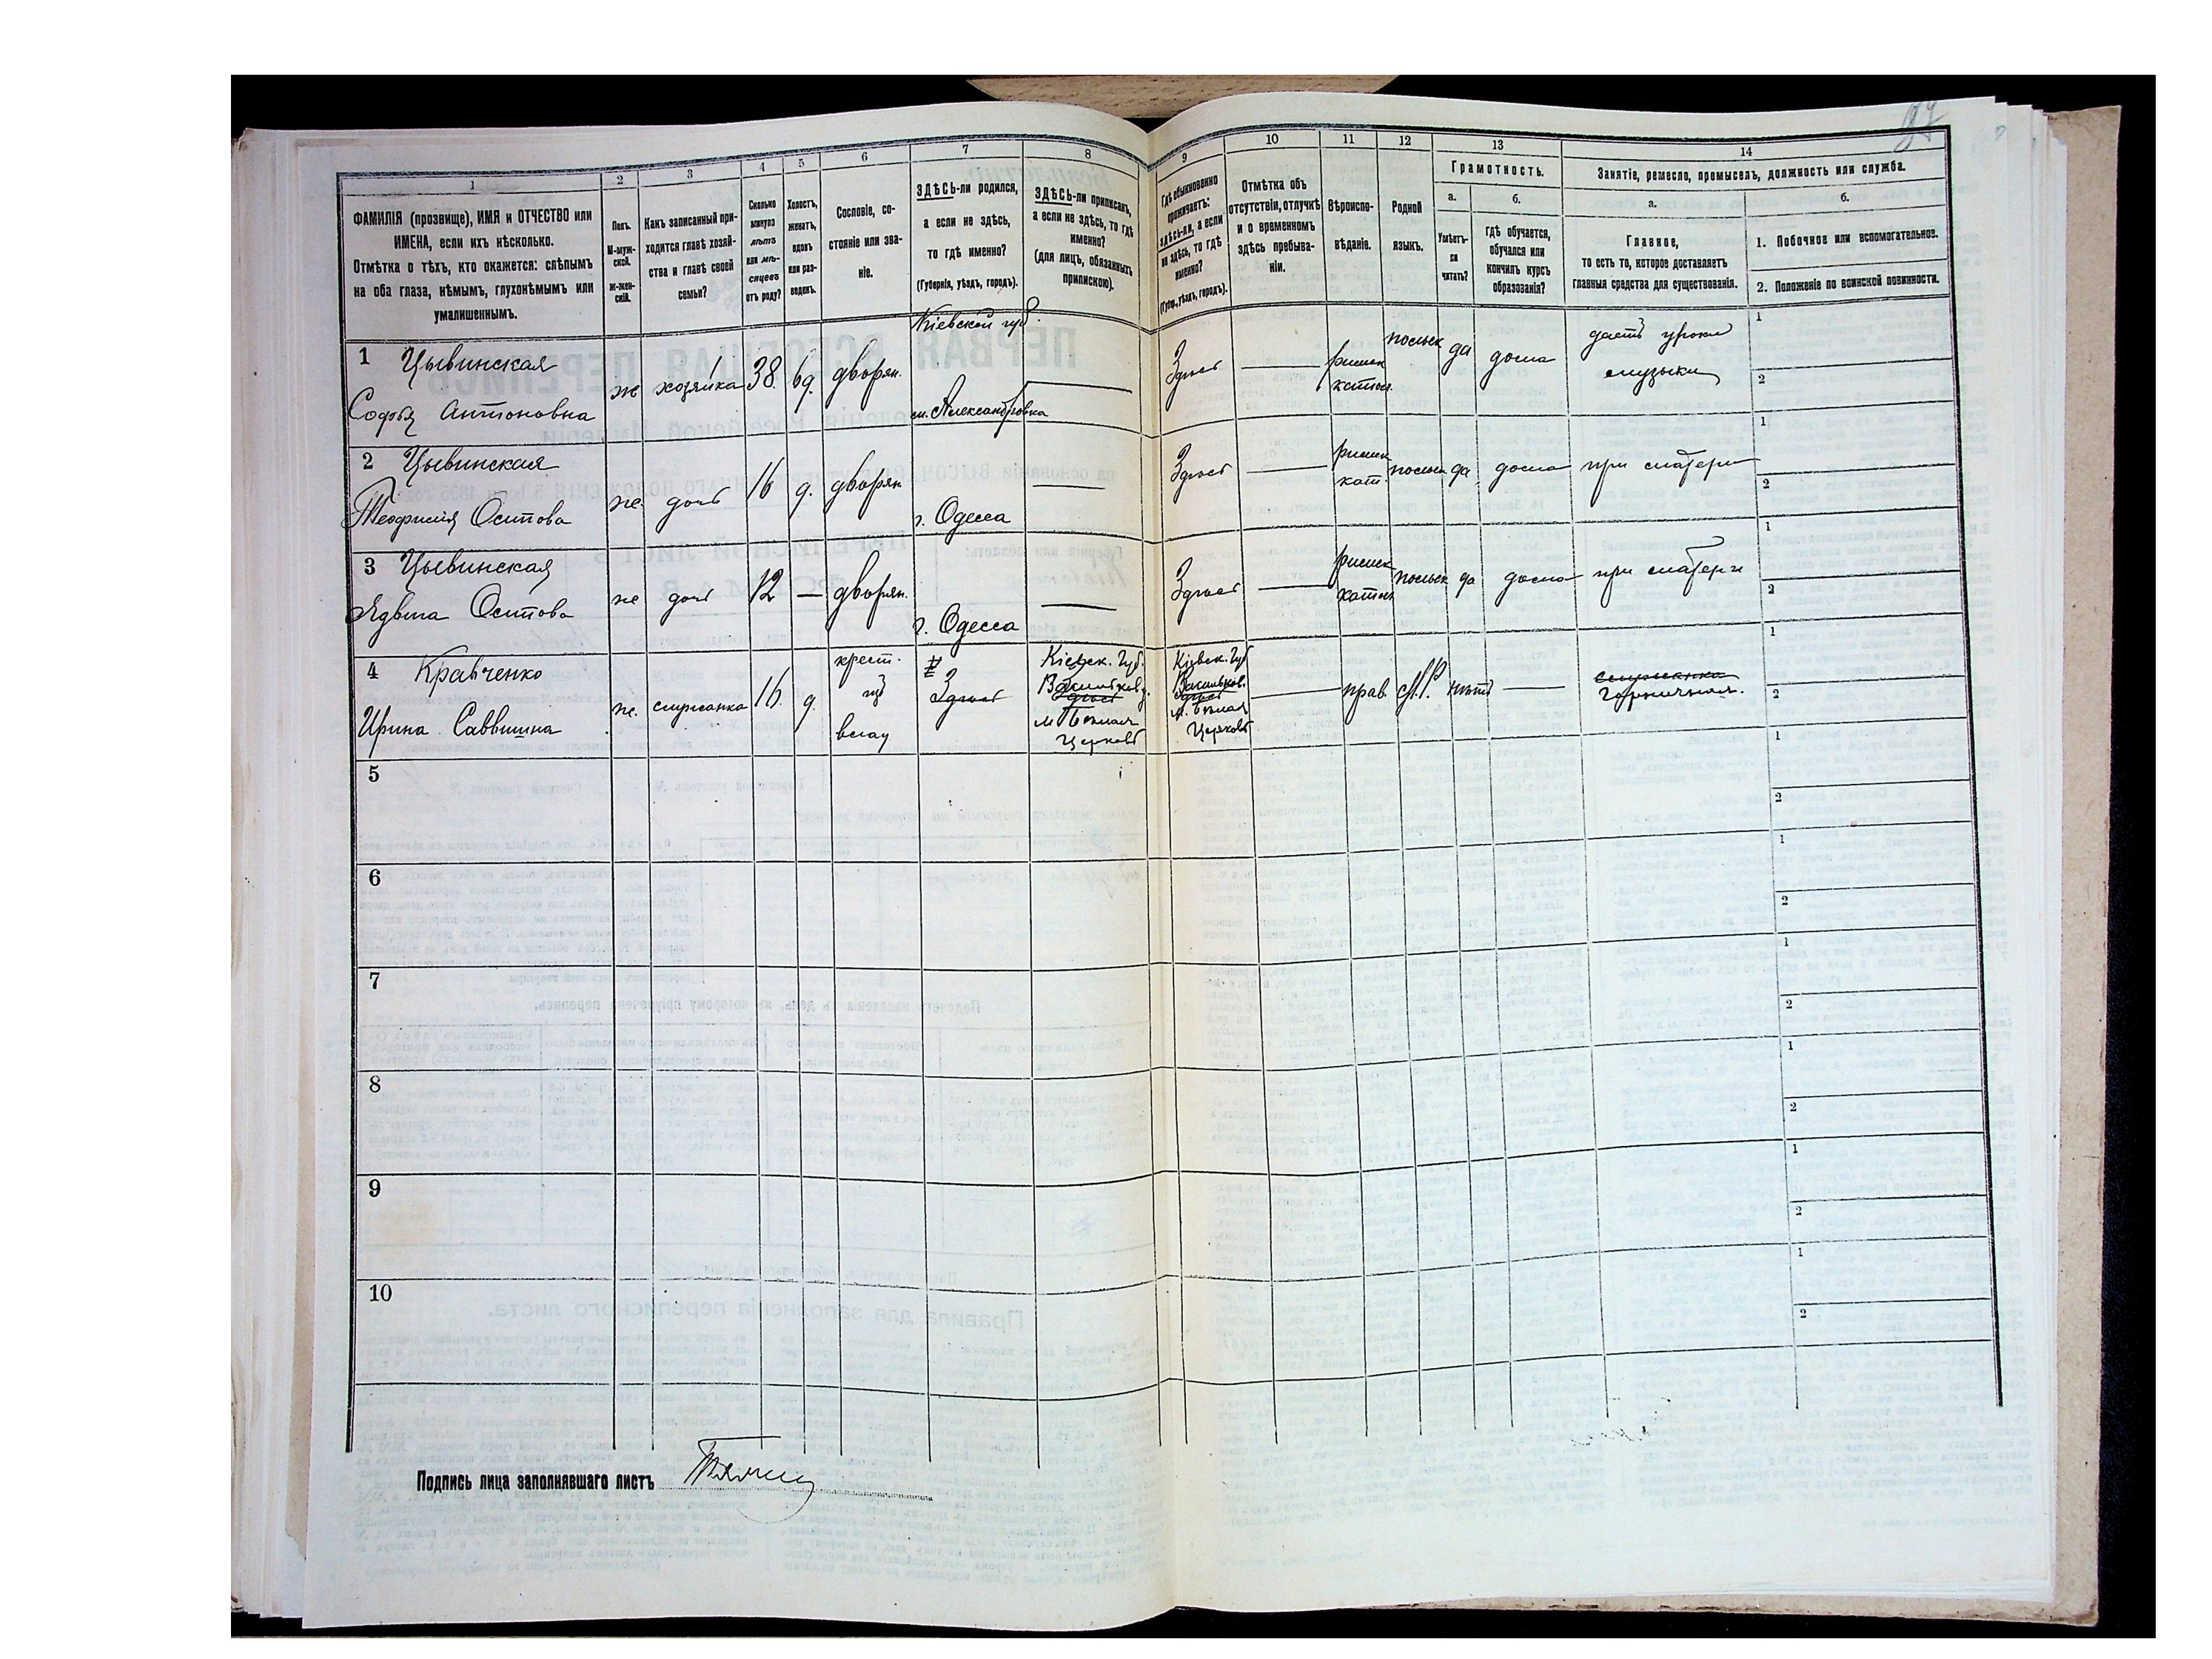 97
1
2
3
4
5
6
7
8
9
10
11
12
13
14
ФАМИЛІЯ (прозвище), ИМЯ и ОТЧЕСТВО или
ИМЕНА, если ихъ нѣсколько.
Отмѣтка о тѣхъ, кто окажется: слѣпымъ
на оба глаза, нѣмымъ, глухонѣмымъ или
умалишеннымъ.
Полъ.
М-муж-
ской.
Ж-жен-
скій.
Какъ записанный при-
ходится главѣ хозяй-
ства и главѣ своей
семьи?
Сколько
минуло
лѣтъ
или мѣ-
сяцевъ
отъ роду?
Холостъ,
женатъ,
вдовъ
или раз-
веденъ.
Сословіе, со-
стояніе или зва-
ніе.
ЗДѢСЬ-ли родился,
а если не здѣсь,
то гдѣ именно?
(Губернія, уѣздъ, городъ).
ЗДѢСЬ-ли приписанъ,
а если не здѣсь, то гдѣ
именно?
(для лицъ, обязанныхъ
припискою).
Гдѣ обыкновенно
проживаетъ:
здѣсь-ли, а если
не здѣсь, то гдѣ
именно?
(Губер., уѣздъ, городъ).
Отмѣтка объ
отсутствіи, отлучкѣ
и о временномъ
здѣсь пребыва-
ніи.
Вѣроиспо-
вѣданіе.
Родной
языкъ.
Грамотность.
а.
Умѣетъ-
ли
читать?
б.
гдѣ обучается,
обучался или
кончилъ курсъ
образованія?
Занятіе, ремесло, промыселъ, должность или служба.
а.
Главное,
то есть то, которое доставляетъ
главныя средства для существованія.
б.
1. Побочное или вспомогательное.
2. Положеніе по воинской повинности.
1 Цывинская
Софья Антоновна
же
хозяйка
38.
вд.
дворян.
Кіевской губ.
м. Александровка
Здѣсь
римск
катол.
польск
да
дома
даетъ уроки
музыки
1
2
2 Цывинская
Теофилія Осипова
же.
дочь
16
д.
дворян
г. Одесса
Здѣсь
римск
кат.
польск
да
дома
при матери
1
2
3 Цывинская
Ядвига Осипова
же
дочь
12
дворян.
г. Одесса
Здѣсь
римск
катол
польск
да
дома
при матери
1
2
4 Кравченко
Ирина Саввишна
же.
служанка
16.
д.
крест.
изъ
влад
Здѣсь
Кіевск. Губ.
Васильков у.
здѣсь
м Бѣлая
Церковь
Кіевск. Губ
Васильков.
здѣсь
м. Бѣлая
Церковь
прав.
М.Р.
нѣтъ
служанка
Горничная.
1
2
5
1
2
6
1
2
7
1
2
8
1
2
9
1
2
10
1
2
Подпись лица заполнявшаго листъ